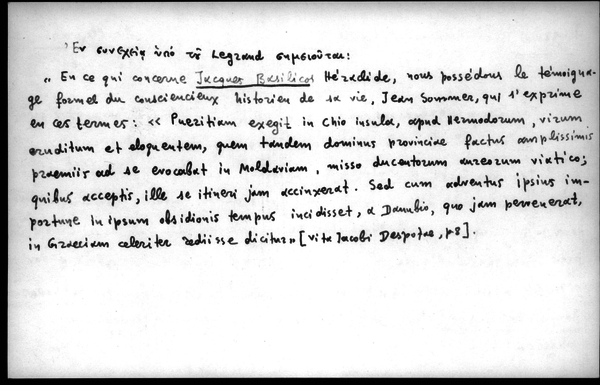 Ἐν συνεχείᾳ ὑπὸ τοῦ Legrand σημειοῦται:
« En ce qui concerne Jacques Basilicos Héraclide, nous possédons le témoigna-
ge formel du consciencieux historien de sa vie, Jean Sommer, qui s'exprime
en ces termes: « Pueritiam exegit in Chio insula, apud Hermodorum, virum
eruditum et eloquentem, quem tandem dominus provinciae factus amplissimis
praemiis ad se evocabat in Moldaviam, misso ducentorum aureorum viatico;
quibus acceptis, ille se itineri jam accinxerat. Sed cum adventus ipsius im-
portune in ipsum obsidionis tempus incidisset, a Danubio, quo jam pervenerat,
in Graeciam celeriter rediisse dicitur» [vita Jacobi Despotae, p8].